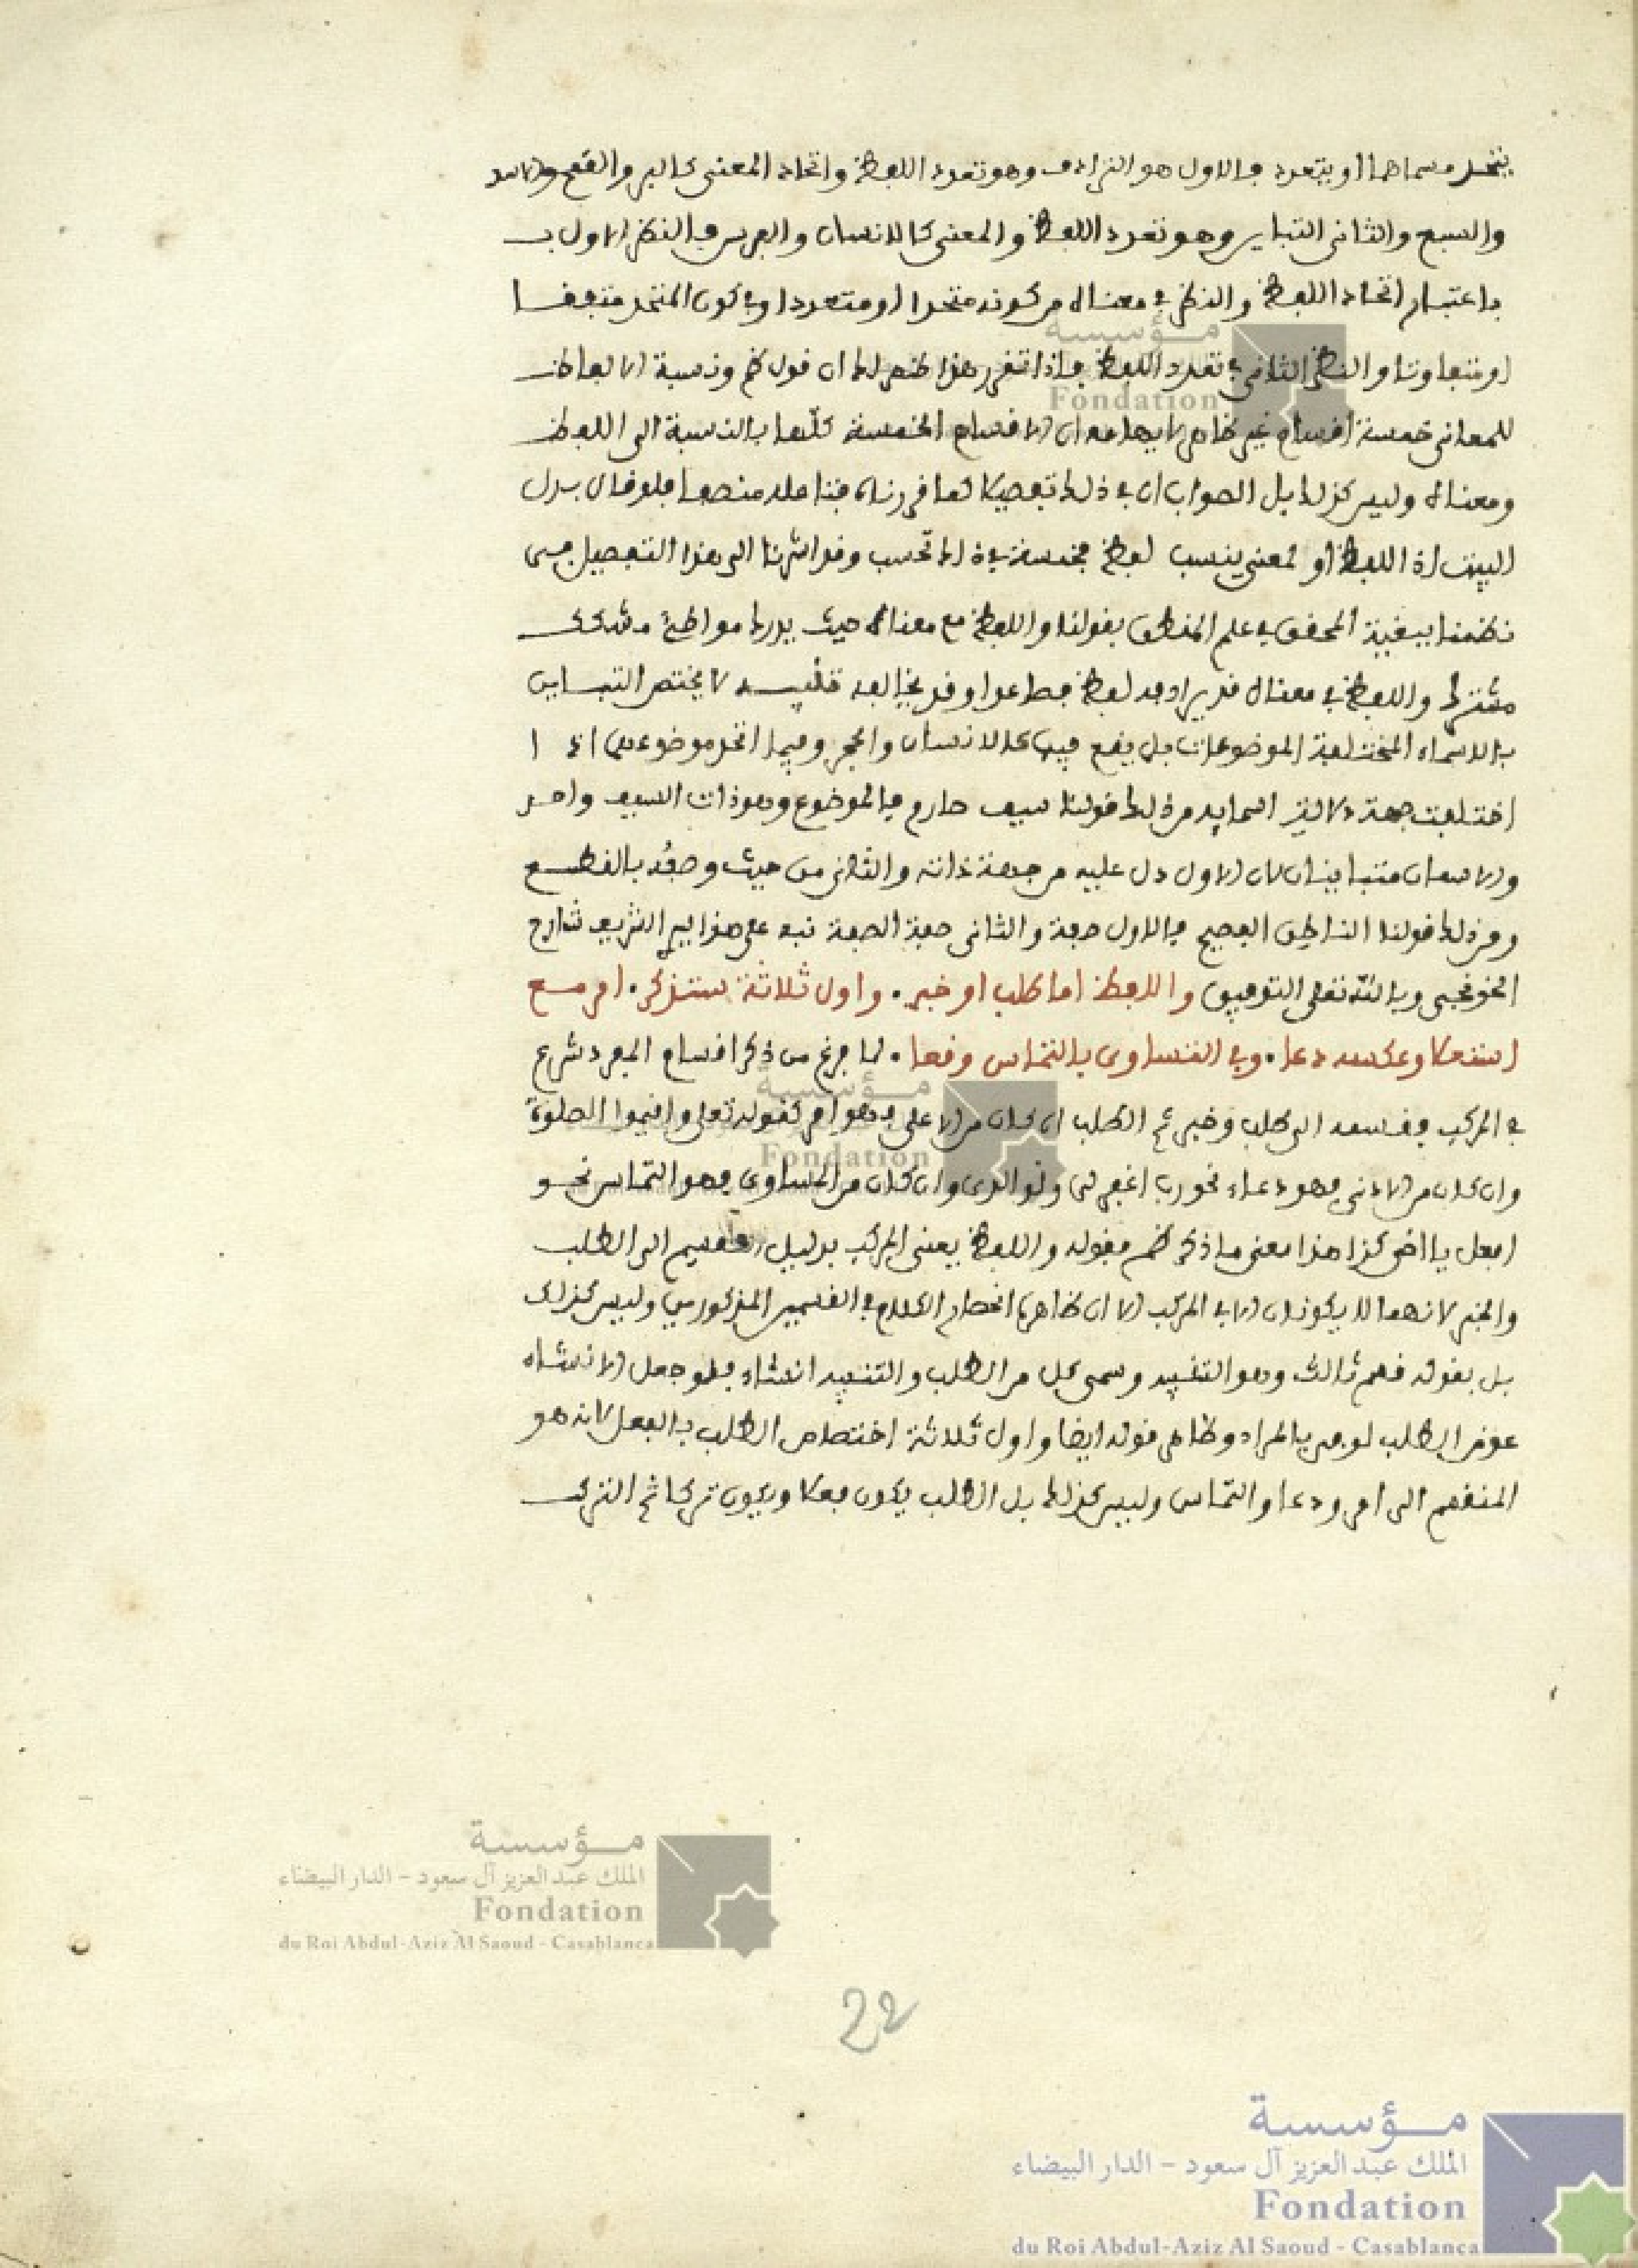 يتحد مسماهما او يتعدد فالاول هو الترادف وهو تعدد اللفظ واتحاد المعنى كالبر والقمح والاسد
والسبع والثاني التباين وهو تعدد اللفظ والمعنى كالانسان والفرس فالنظر الاول
باعتبار اتحاد اللفظ والنظر في معناه من كونه متحدا او متعددا وفي كون المتحد متفقا
او متفاوتا والنظر الثاني في تعدد اللفظ فاذا تقرر هذا ظهر لك ان قول ظم ونسبة الالفاظ
للمعاني خمسة اقسام غير ظاهر لايهامه ان الاقسام الخمسة كلها بالنسبة الى اللفظ
ومعناه وليس كذلك بل الصواب ان في ذلك تفصيلا كما قررناه فتامله منصفا فلو قال بدل
البيت اذا اللفظ او لمعنى ينسب لفظ فخمسة في ذاك تحسب وقد اشرنا الى هذا التفصيل في
نظمنا ببغية المحقق في علم المنطق بقولنا واللفظ مع معناه حيث يدرك مواطئ مشكك
مشترك واللفظ في معناه قد يرادفه لفظ فصاعدا وقد يخالفه تنبيه لا يختص التباين
بالاسماء المختلفة الموضوعات بل يقع فيها كالانسان والحجر وفيما اتحد موضوعها اذا
اختلفت جهة دلالة اسمائه من ذلك قولنا سيف صارم فالموضوع وهو ذات السيف واحد
والاسمان متباينان لان الاول دل عليه من جهة ذاته والثاني من حيث وصفه بالقطع
ومن ذلك قولنا الناطق الفصيح فالاول صفة والثاني صفة الصفة نبه على هذا الشريف شارح
الخونجي وبالله تعلى التوفيق واللفظ اما طلب او خبر. واول ثلاثة ستذكر. امر مع
استعلا وعكسه دعا. وفي التساوي بالتماس وقعا. لما فرغ من ذكر اقسام المفرد شرع
في المركب فقسمه الى طلب وخبر ثم الطلب ان كان من الاعلى فهو امر كقوله تعلى واقيموا الصلوة
وان كان من الادنى فهو دعاء نحو رب اغفر لي ولوالدي وان كان من المساوي فهو التماس نحو
افعل يا اخي كذا هذا معنى ما ذكر ظم فقوله واللفظ يعني المركب بدليل تقسيم الى الطلب
والخبر لانهما لا يكونان الا في المركب الا ان ظاهره انحصار الكلام في القسمين المذكورين وليس كذلك
بل بقوله قسم ثالث وهو التنبيه وسمي كل من الطلب والتنبيه انشاء فلو جعل الانشاء
عوض الطلب لوفى بالمراد وظاهر قوله ايضا واول ثلاثة اختصاص الطلب بالفعل لانه هو
المنقسم الى امر ودعا والتماس وليس كذلك بل الطلب يكون فعلا ويكون تركا ثم الترك
مؤسسة
الملك عبد العزيز آل سعود - الدار البيضاء
Fondation
du Roi Abdul-Aziz Al Saoud - Casablanca
22
مؤسسة
الملك عبد العزيز آل سعود - الدار البيضاء
Fondation
du Roi Abdul-Aziz Al Saoud - Casablanca